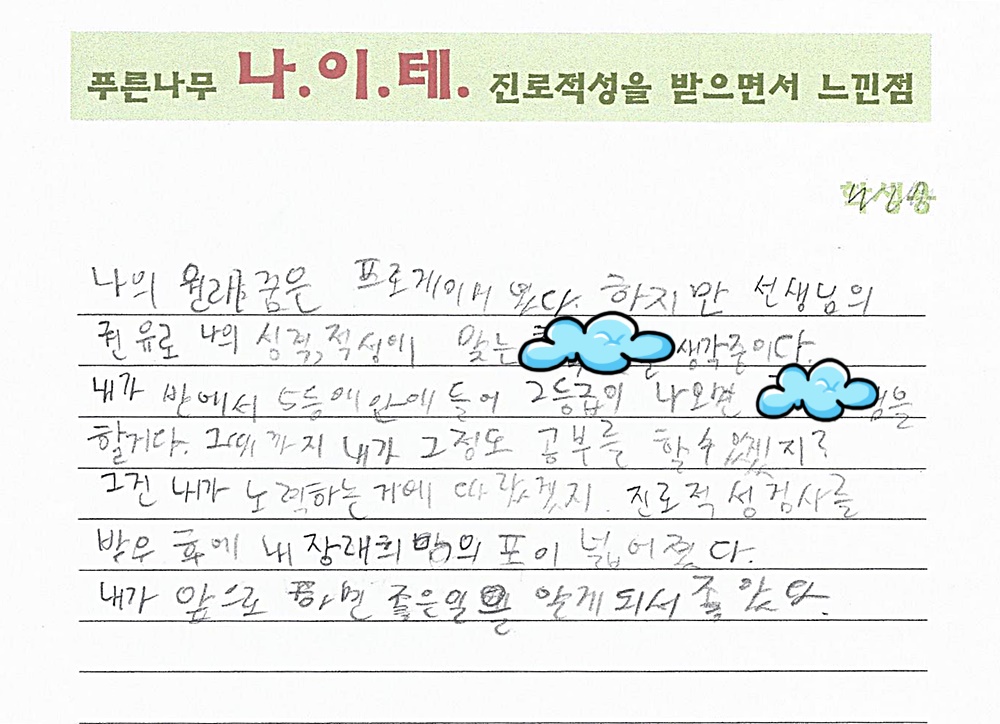 푸른나무 나.이.테. 진로적성을 받으면서 느낀점
학생용
나의 원래 꿈은 프로게이머 였다. 하지만 선생님의
권유로 나의 성적, 적성에 맞는 생각중이다.
내가 반에서 5등에안에 들어 2등급이 나오면
할거다. 그때까지 내가 그정도 공부를 할수 있겠지?
그건 내가 노력하는거에 따랐겠지. 진로적성검사를
받은 후에 내 장래희망의 포이 넓어졌다.
내가 앞으로 하면 좋은일을 알게되서 좋았다.